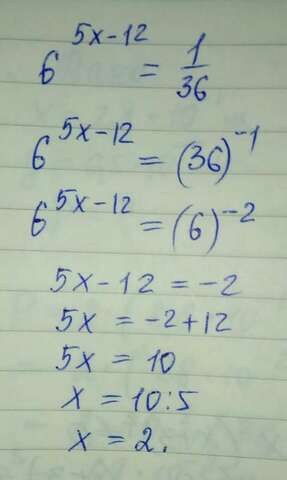 6^(5x-12) = 1/36
6^(5x-12) = (36)^-1
6^(5x-12) = (6)^-2
5x - 12 = -2
5x = -2+12
5x = 10
x = 10:5
x = 2.